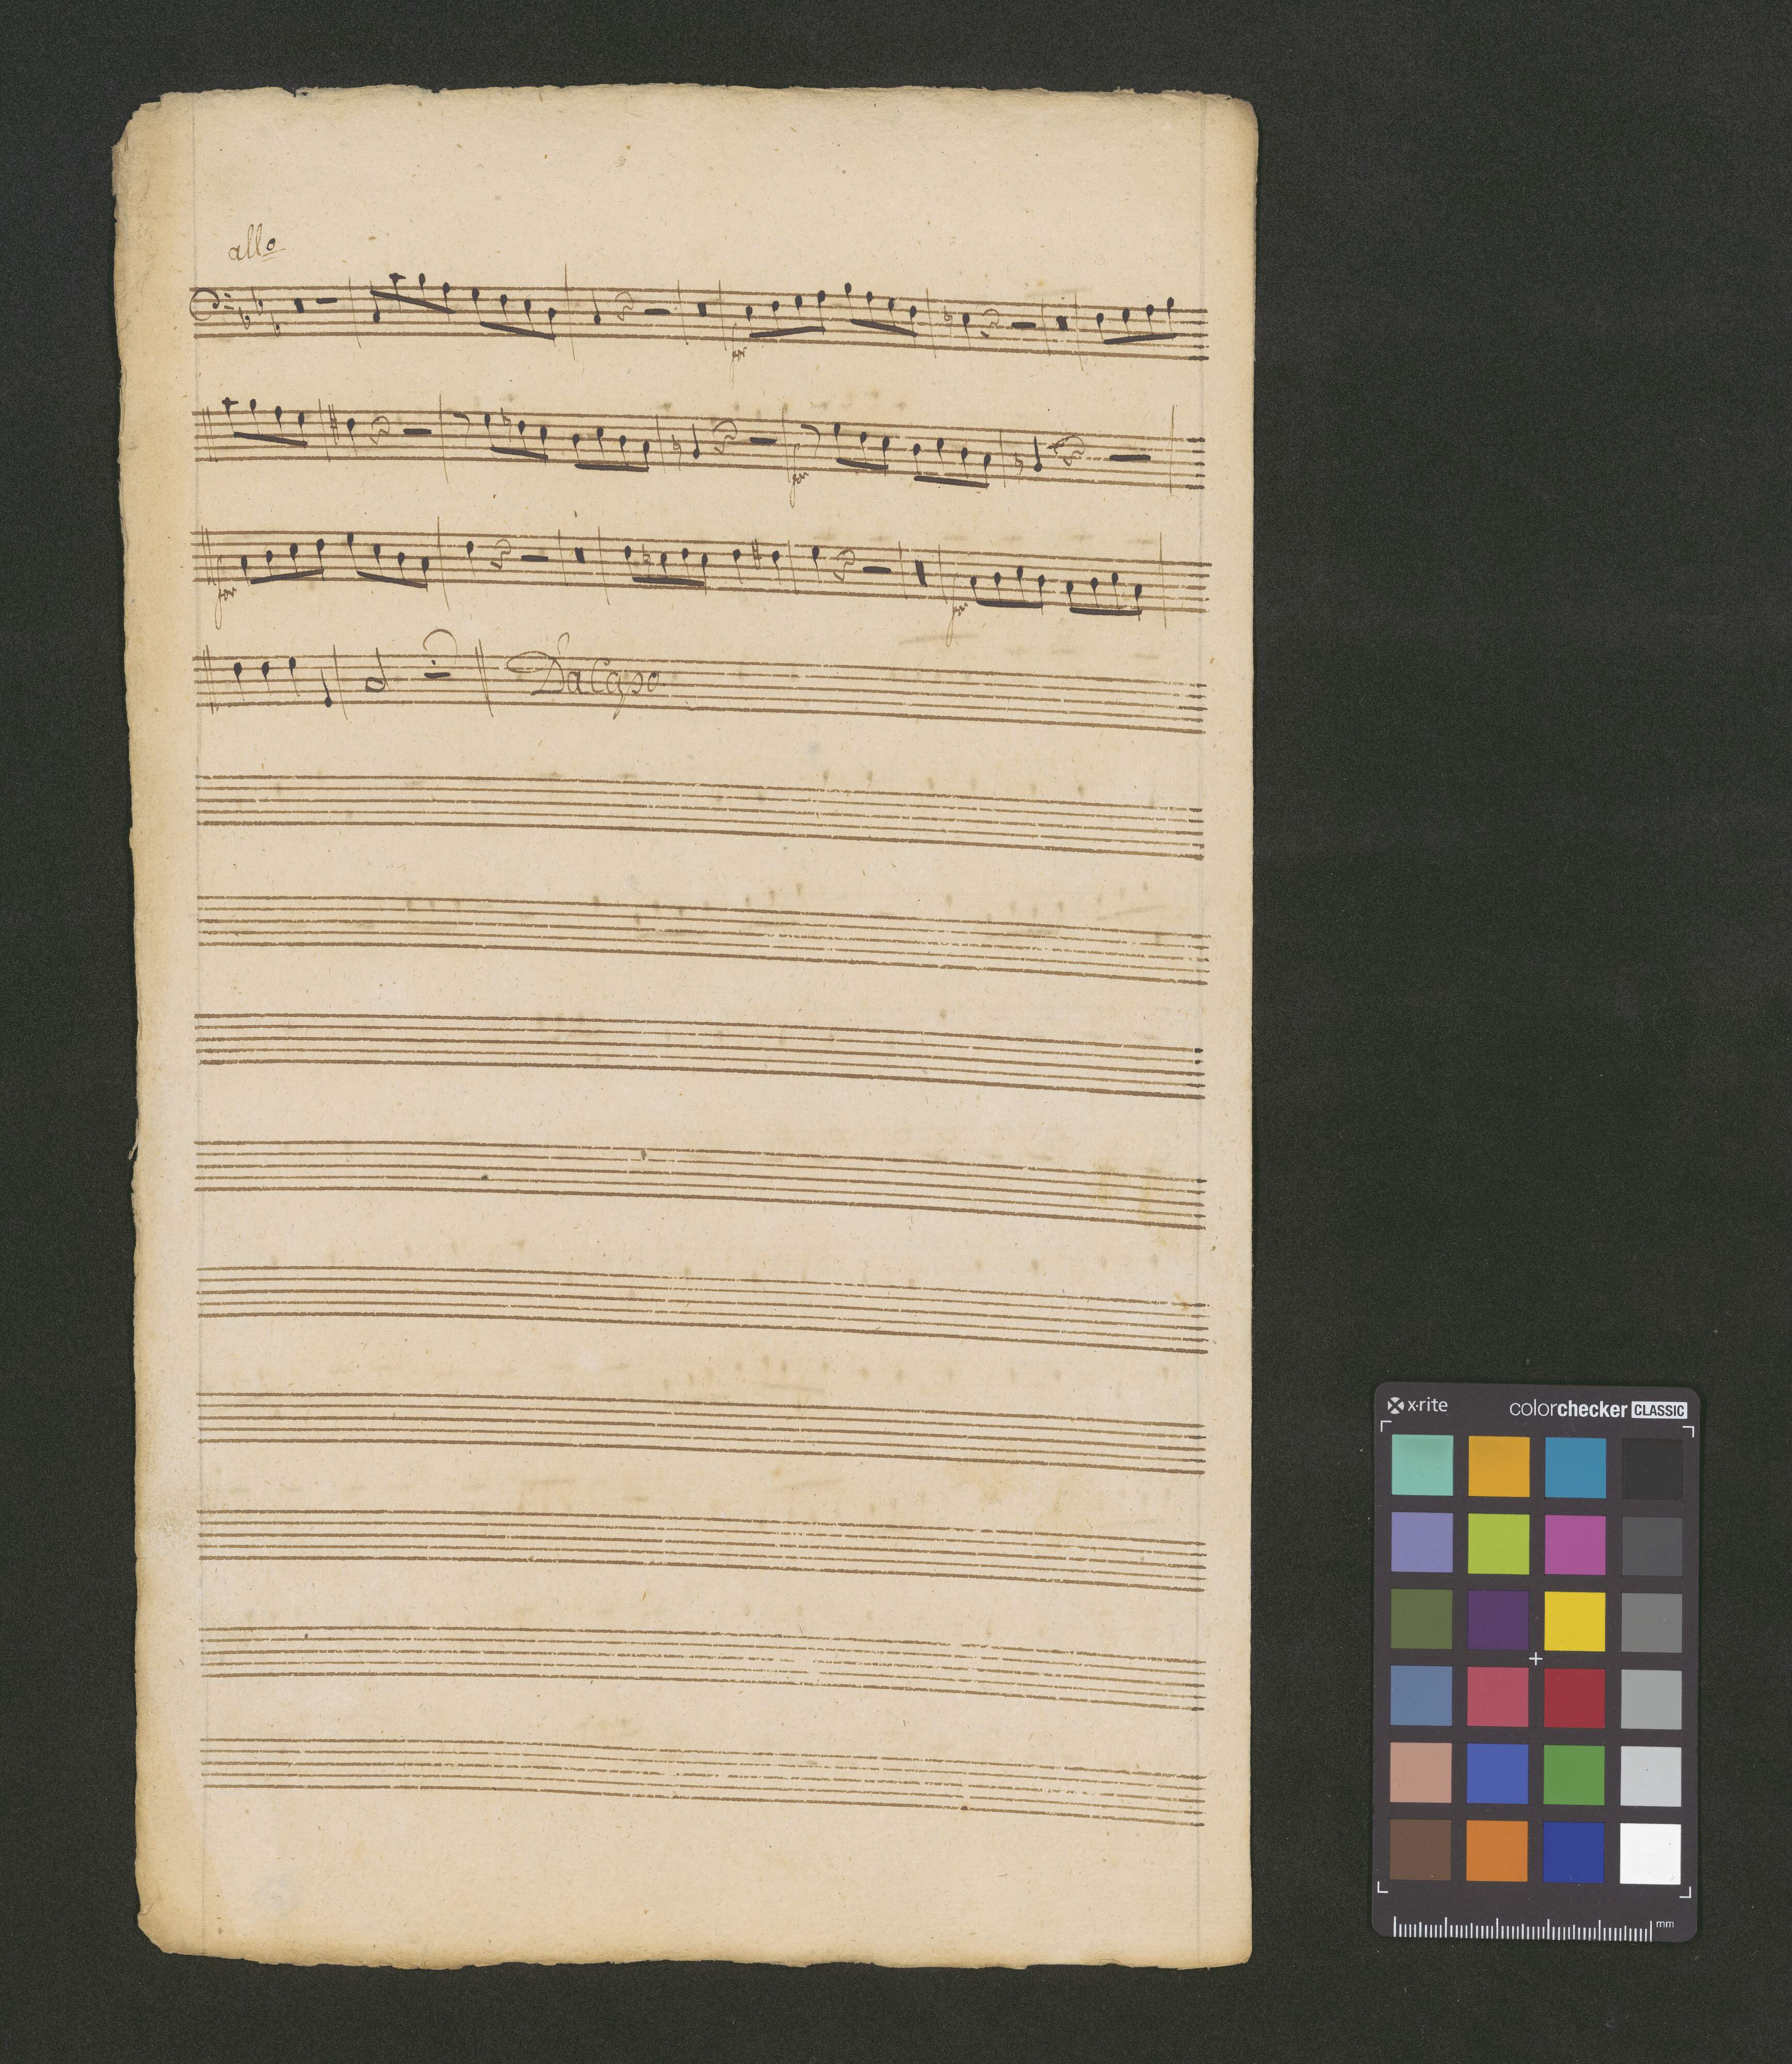 allo
for
for
for
for
Da Capo
x·rite
colorchecker CLASSIC
mm